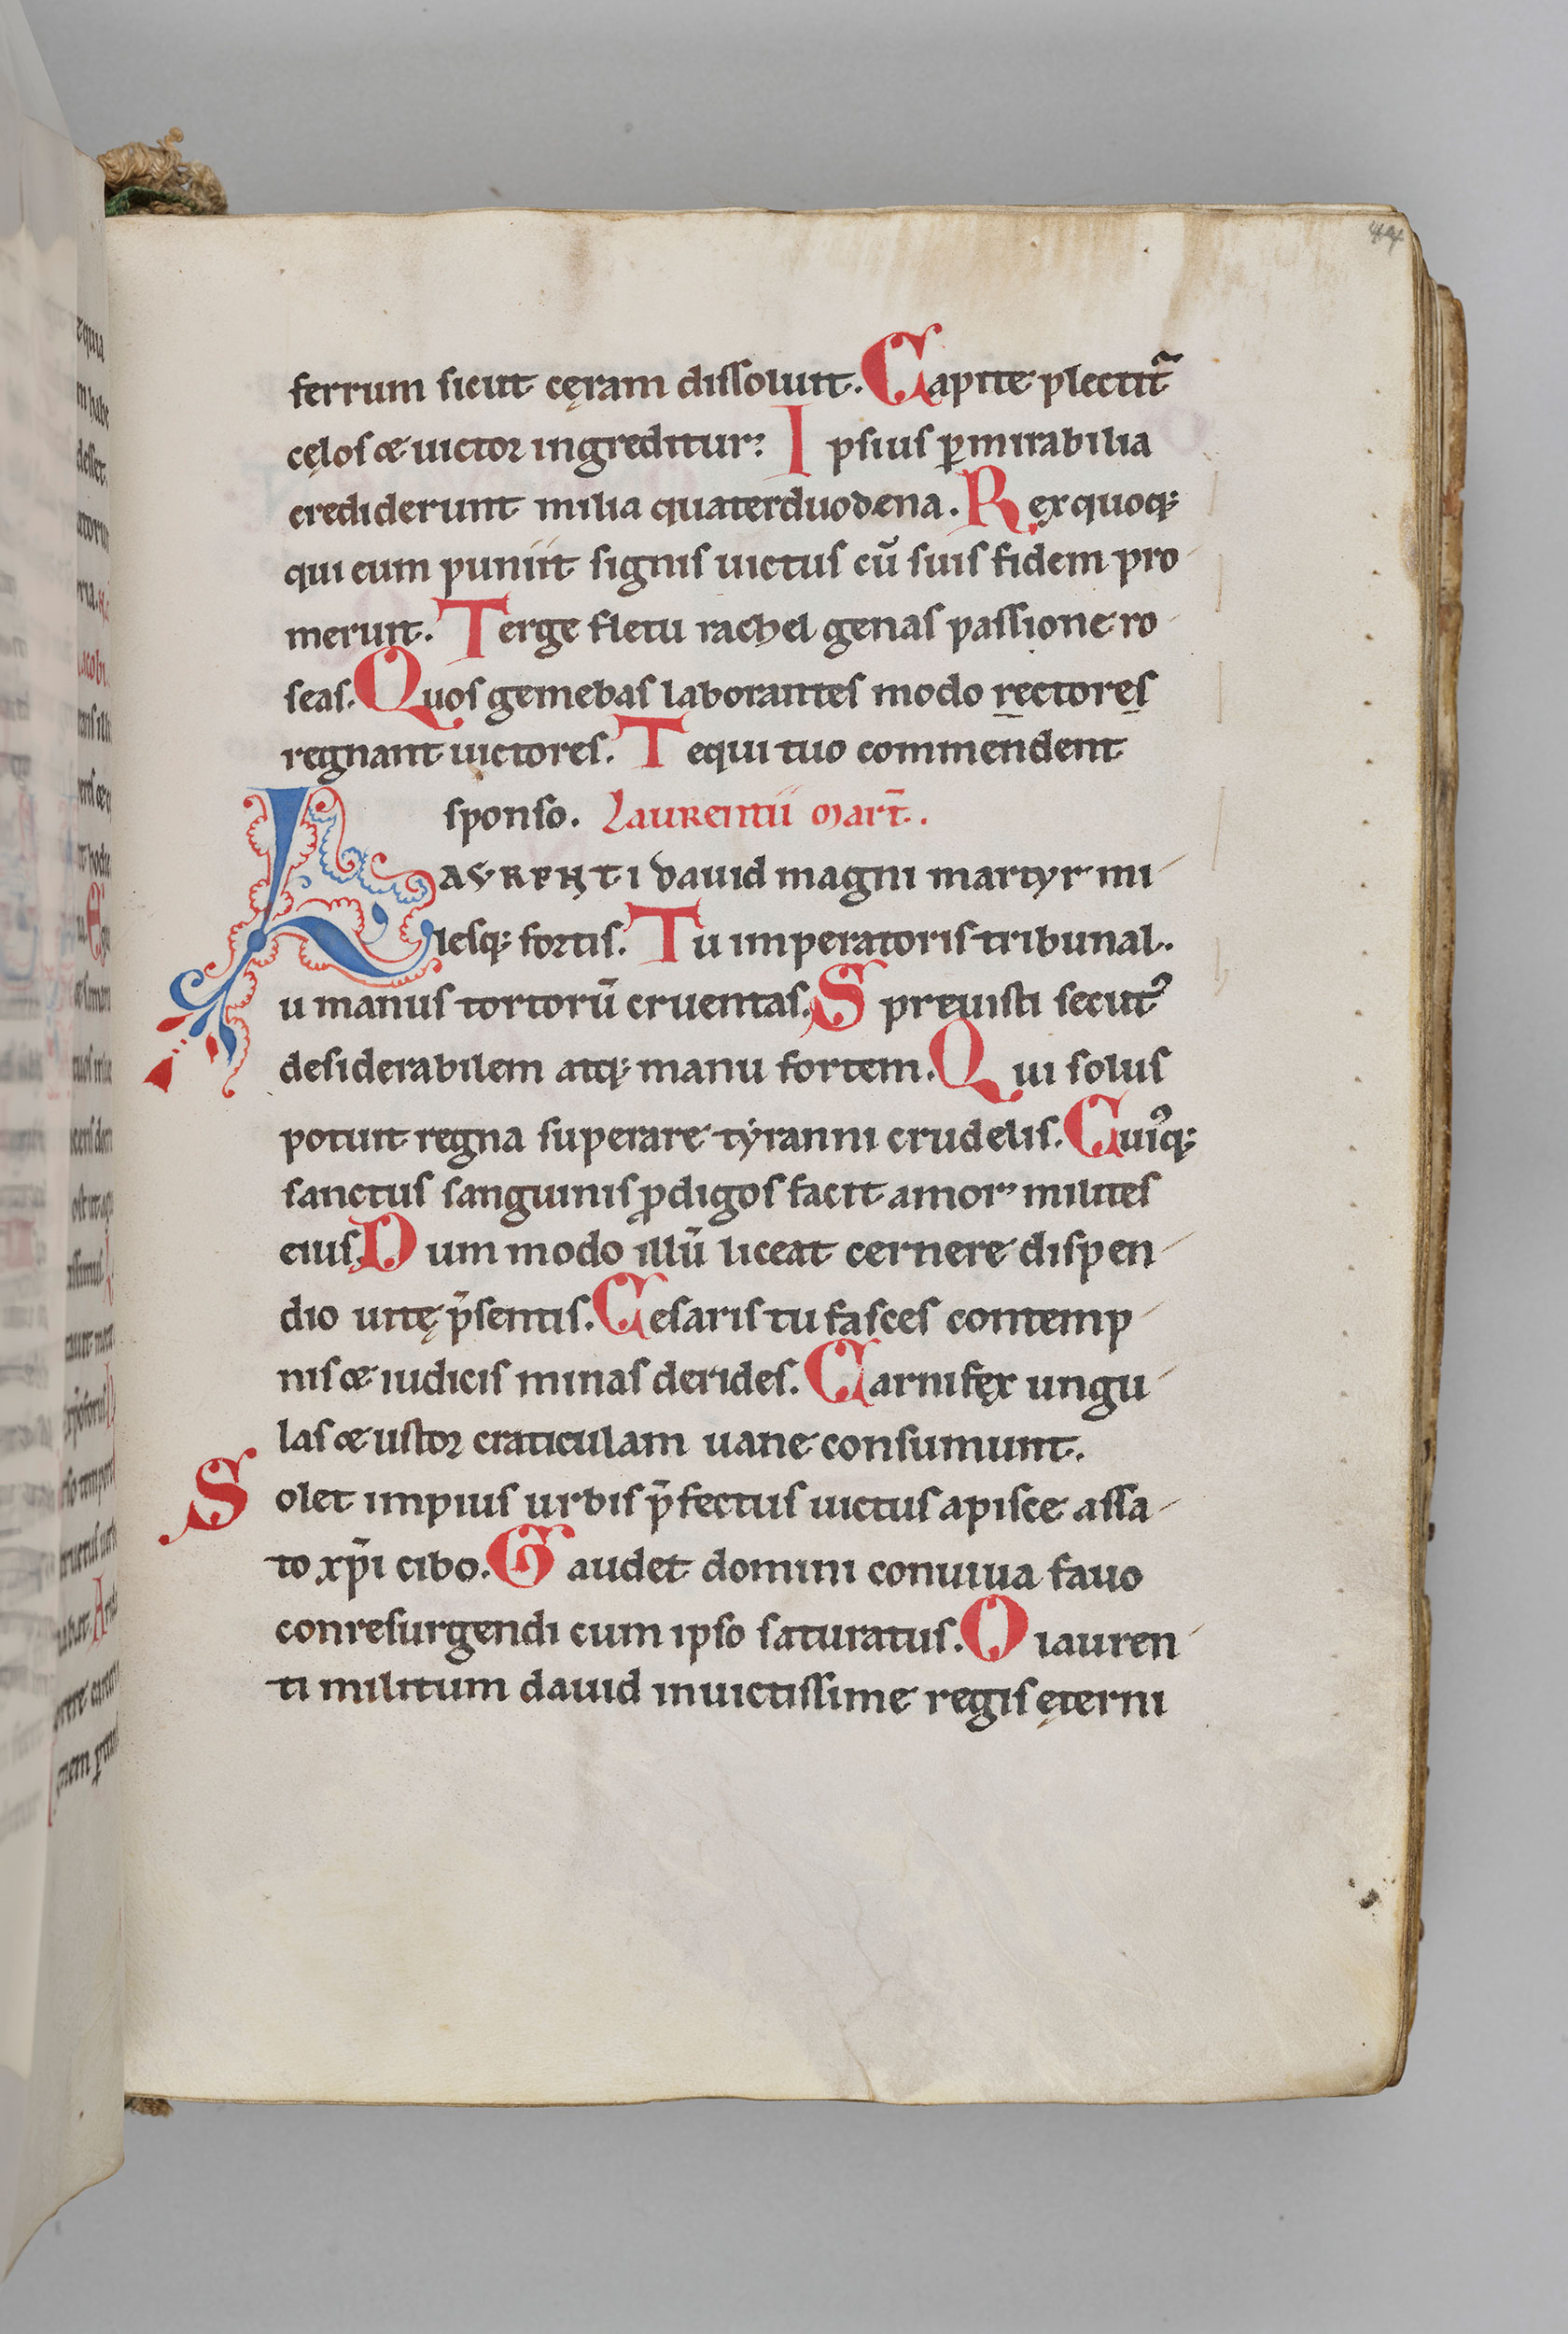 44
ferrum sicut cęram dissoluit. Capite plectit᷑
cęlos & uictor ingreditur: Ipsius ꝑmirabilia
crediderunt milia quaterduodena. Ręx quoq;
qui eum puniit signis uictus cū suis fidem pro
meruit. Terge fletu rachel genas passione ro
seas. Quos gemebas laborantes modo rectores
regnant uictores. Te qui tuo commendent
sponso. Laurentii mart̄.
LAVRENTI dauid magni martyr mi
lesq; fortis. Tu imperatoris tribunal.
u manus tortorū cruentas. Spreuisti secutꝰ
desiderabilem atq; manu fortem. Qui solus
potuit regna superare tyranni crudelis. Cuiꝰq;
sanctus sanguinis ꝓdigos facit amor milites
eius. Dum modo illū liceat cernere dispen
dio uitę p̄sentis. Cesaris tu fasces contemp
nis & iudicis minas derides. Carnifęx ungu
las & ustor craticulam uane consumunt.
Solet impius urbis p̄fectus uictus a pisce assa
to xp̄i cibo. Gaudet domini conuiua fauo
conresurgendi cum ipso saturatus. O lauren
ti militum dauid inuictissime regis ęterni